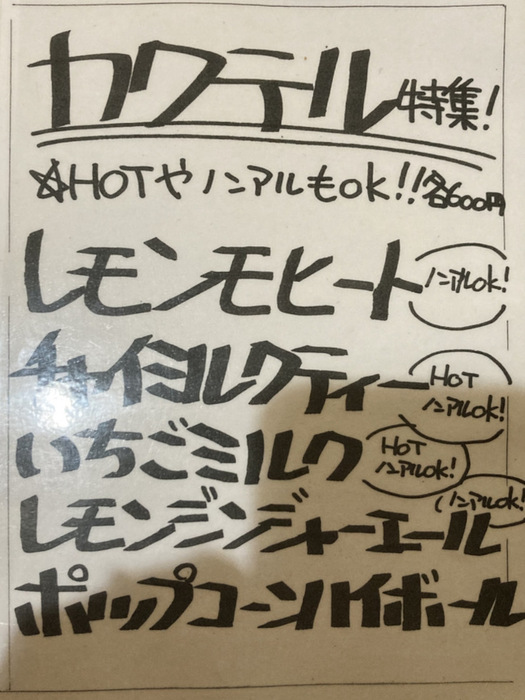 カクテル特集!
☆HOTやノンアルもok!!各600円
レモンモヒート ノンアルok!
チャイミルクティー HOT ノンアルok!
いちごミルク HOT ノンアルok!
レモンジンジャーエール ノンアルok!
ポップコーンハイボール